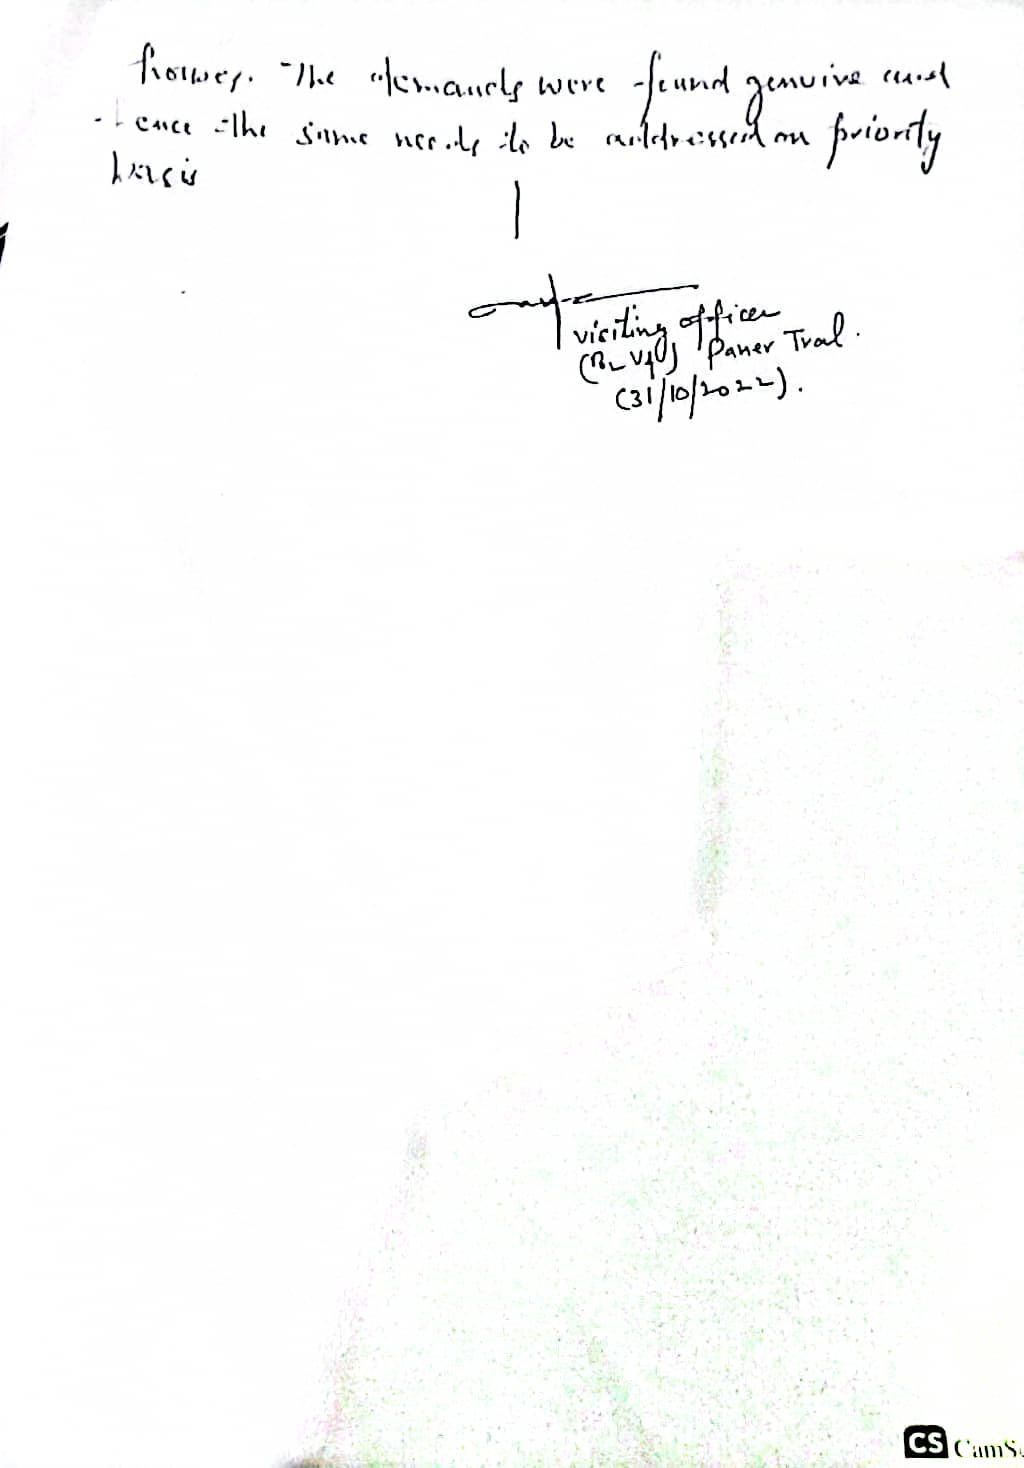 houses. The demands were found genuine and
hence the same needs to be addressed on priority
basis
visiting officer
(B2V4) Paner Tral.
(31/10/2022).
CS CamS